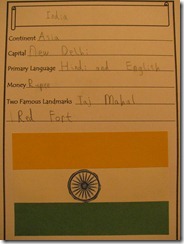 India
Continent Asia
Capital New Delhi
Primary Language Hindi and English
Money Rupee
Two Famous Landmarks Taj Mahal
Red Fort